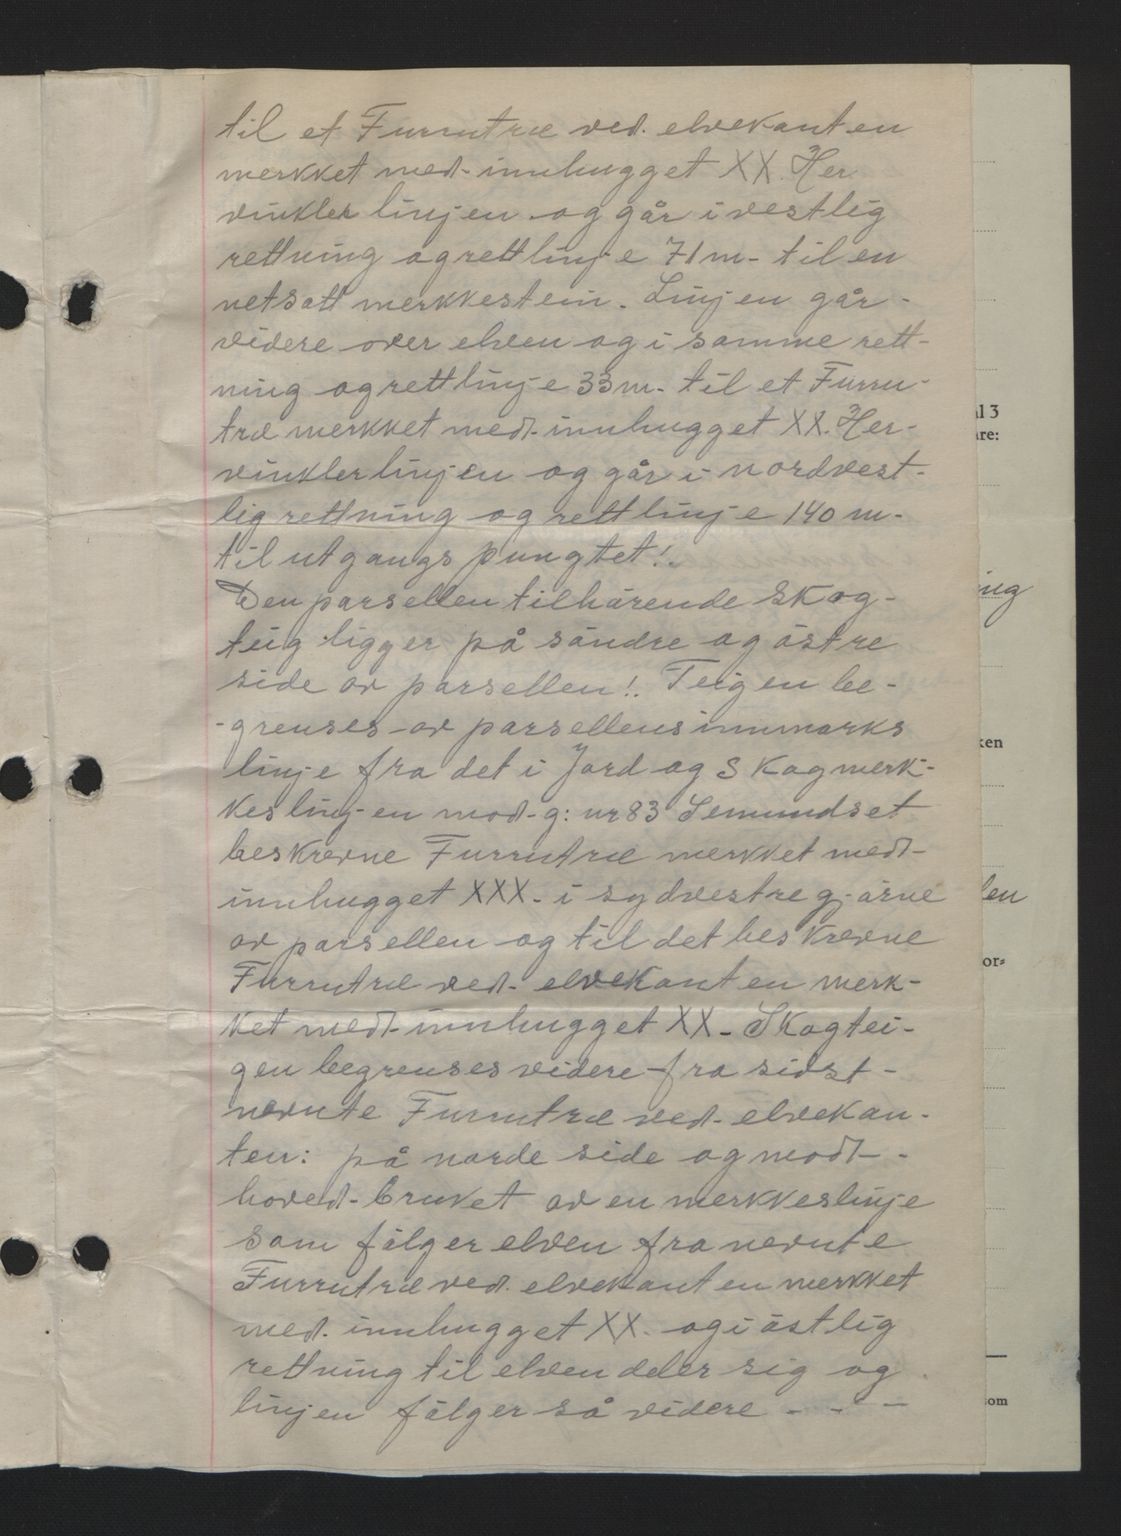 til et Furrutræ ved. elvekanten
merkket med- innhugget XX. Her
vinkler linjen og går i vestlig
rettning og rettlinje 71 m- til en
netsatt merkkestein. Linjen går -
videre over elven og i samme rett-
ning og rettlinje 33 m- til et Furru-
træ merkket medt- innhugget XX. Her-
vinkler linjen og går i nordvest-
lig rettning og rett linje 140 m-
til utgangs pungtet!.
Den parsellen tilhärende Skog-
teig ligger på söndre og östre
side av parsellen!. Teigen be-
-grenses av parsellens innmarks
linje fra det i Jord og Skogmerk-
keslinjen mod- g: nr 83 Semundset
beskrevne Furrutræ merkket medt-
innhugget XXX- i sydvestre gjörne
av parsellen og til det beskrevne
Furrutræ ved- elvekanten merk-
ket medt- innhugget XX- Skogtei-
gen begrenses videre fra sidst-
nevnte Furrutræ ved- elvekan-
ten: på norde side og modt- -
hoved-bruket av en merkkeslinje
som fölger elven fra nevnte
Furrutræ ved. elvekanten merkket
med. innhugget XX. og i östlig
rettning til elven deler sig og
linjen fölger så videre - - -
l 3
re:
ing
ken
len
or=
om